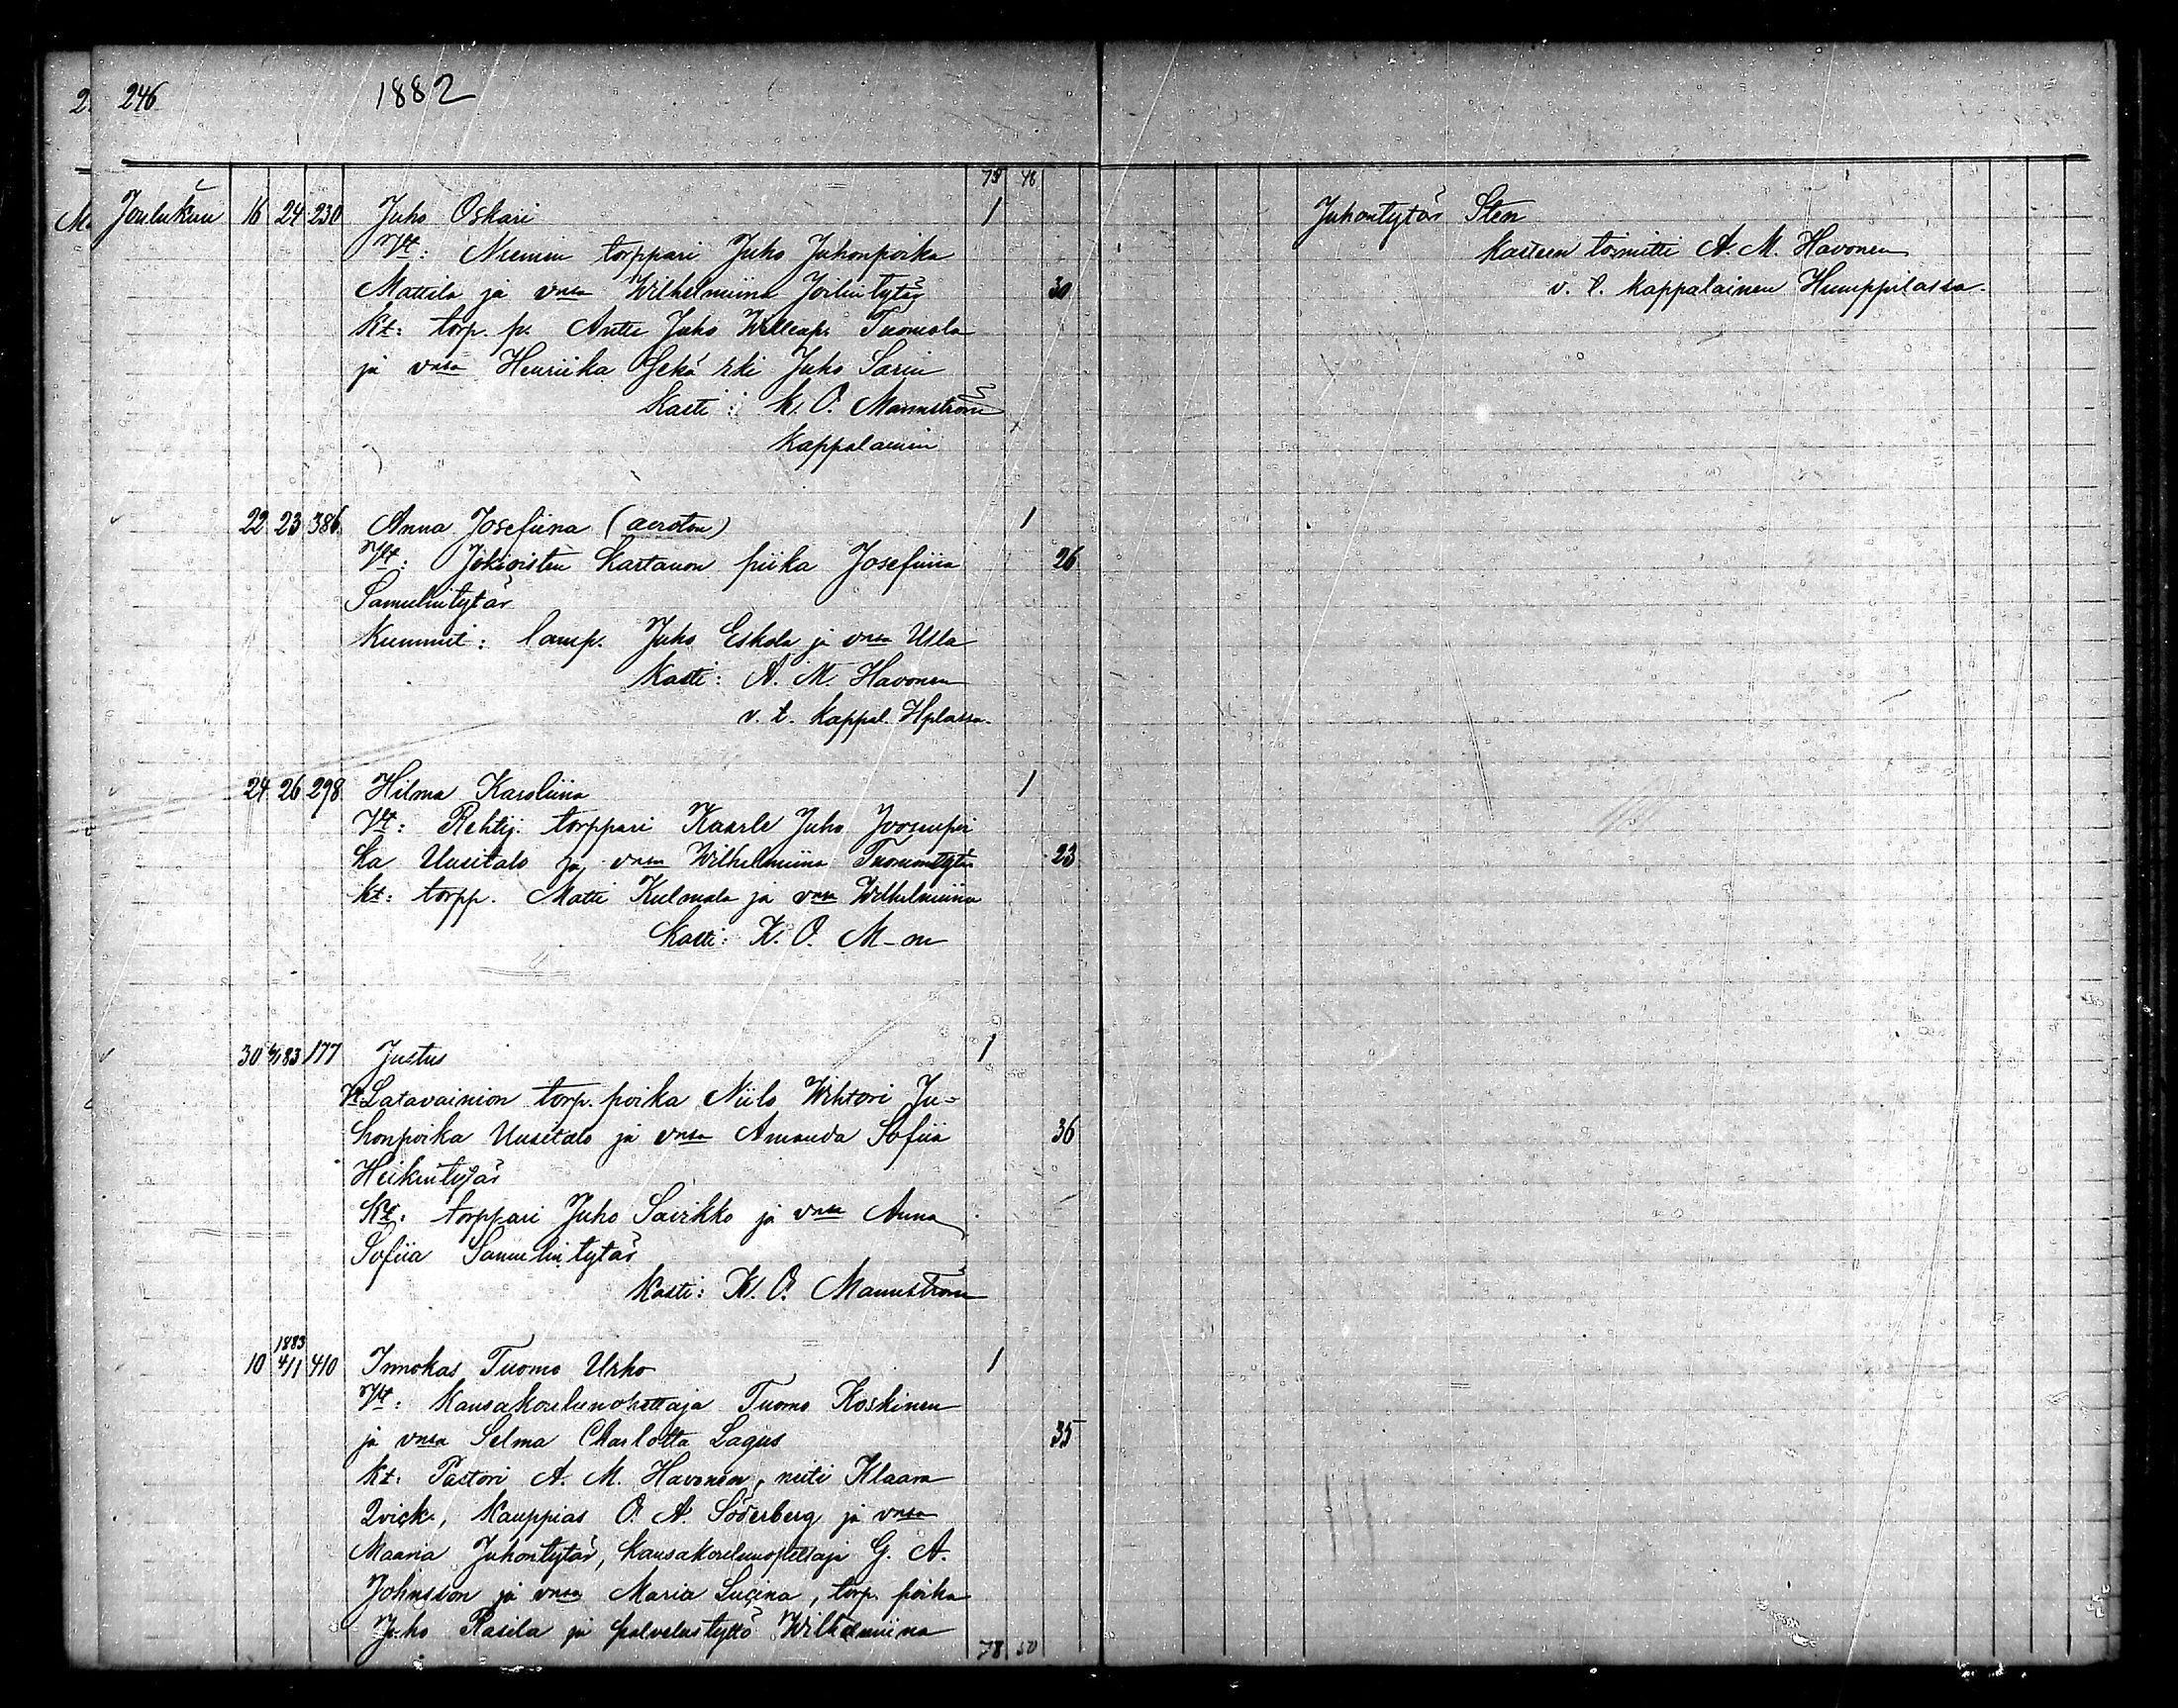 246 1882
75 48
Joulukuu 16 24 230 Juho Oskari 1
Vt: Niemen torppari Juho Juhonpoika
Mattila ja vmsa Wilhelmiina 30
Kt: torp. p. Antti Juho Tuomola
ja vmsa Henriika Sekä rki Juho Sarin
Kasti: K. O. Mannström
Kappalainen
22 23 386 Anna Josefiina (avioton) 1
Vt: Jokioisten Kartanon piika Josefiina 26
Samulintytär
Kummit: lamp. Juho Eskola ja vmsa Ulla
Kasti: A. M. Havonen
v. t. Kappal. Hplassa.
24 26 298 Hilma Karoliina 1
Vt: Rehtij. torppari Kaarle Juho Joosenpoi
ka Uusitalo ja vmsa Wilhelmiina Tuomontytär 23
Kt: torpp. Matti Kulmala ja vmsa Wilhelmiina
Kasti: K. O. M-m
30 83 177 Justus 1
Vt: Latavainion torp. poika Niilo Wihtori Ju=
honpoika Uusitalo ja vmsa Amanda Sofiia 36
Heikintytär
Kt: torppari Juho Sairkko ja vmsa Anna
Sofiia Samulintytär
Kasti: K. O. Mannström
1883
10 4/1 410 Tuomo Urho 1
Vt: Kansakoulunopettaja Tuomo Koskinen
ja vmsa Selma Charlotta Lagus 35
Kt: Pastori A. M. Havonen, neiti Klaara
Qvick, Kauppias O. A. Söderberg ja vmsa
Maaria Juhontytär, Kansakoulunopettaja G. A.
Johnsson ja vmsa Maria Lucina, torp. poika
Juho Rasila ja palvelustyttö Wilhelmiina
78 50
Juhontytär Sten
Kasteen toimitti A. M. Havonen
v. t. Kappalainen Humppilassa.